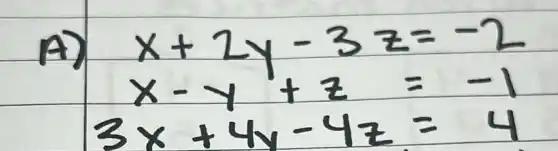 A) x + 2y - 3z = -2
x - y + z = -1
3x + 4y - 4z = 4